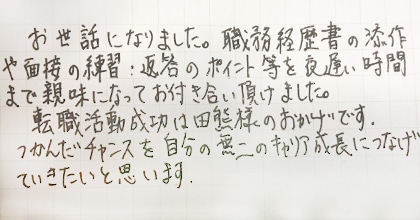 お世話になりました。職務経歴書の添作
や面接の練習：返答のポイント等を夜遅い時間
まで親味になってお付き合い頂けました。
転職活動成功は田熊様のおかげです。
つかんだチャンスを自分の無二のキャリア成長につなげ
ていきたいと思います.